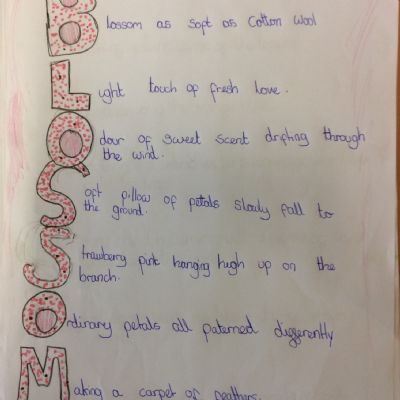 Blossom as soft as Cotton Wool
Light touch of fresh Love.
Odour of sweet scent drifting through
the wind.
Soft pillow of petals slowly fall to
the ground.
Strawberry pink hanging high up on the
branch.
Ordinary petals all paterned differently
Making a carpet of feathers.